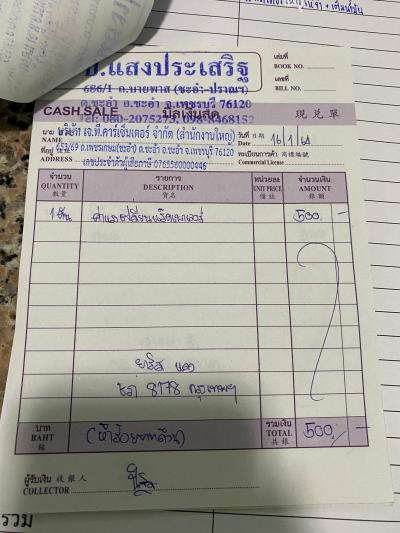 อ.แสงประเสริฐ
686/1 ถ.นายพาส (ชะอำ-ปราณฯ)
ต.ชะอำ อ.ชะอำ จ.เพชรบุรี 76120
Tel: 080-2075273, 098-8468152
เล่มที่
BOOK NO.
เลขที่
BILL NO.
CASH SALE บิลเงินสด 現兌單
นาม บริษัท เจ.ที.คาร์เซ็นเตอร์ จำกัด (สำนักงานใหญ่) วันที่ 日期
NAME Date 16/1/64
ที่อยู่ 553/69 ถ.เพชรเกษม(ชะอำ) ต.ชะอำ อ.ชะอำ จ.เพชรบุรี 76120 ทะเบียนการค้า 商標編號
ADDRESS เลขประจำตัวผู้เสียภาษี 0765560000446 Commercial License
จำนวน รายการ หน่วยละ จำนวนเงิน
QUANTITY DESCRIPTION UNIT PRICE AMOUNT
數量 貨名 備註 銀額
1 500 -
8778 กรุงเทพฯ
บาท รวมเงิน
BAHT (ห้าร้อยบาทถ้วน) TOTAL 500 -
銖 共銀
ผู้รับเงิน 收銀人
COLLECTOR
รวม